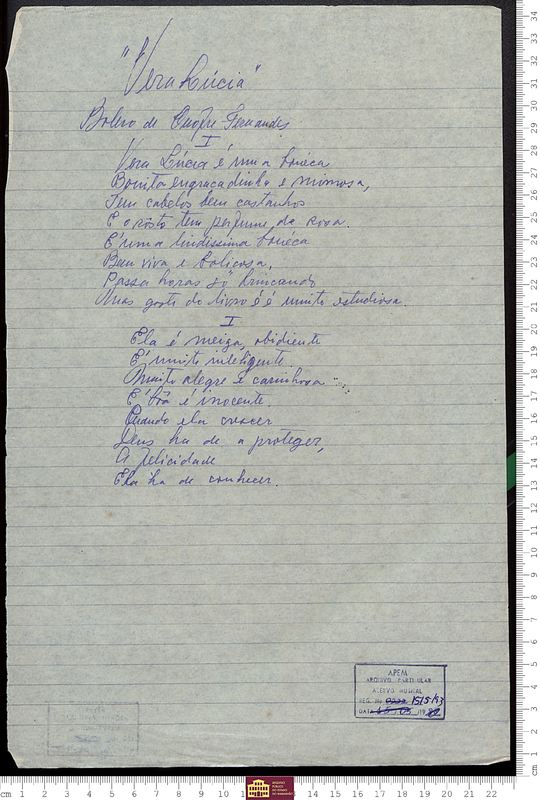 "Vera Lúcia"
Bolero de Onofre Fernandes
I
Vera Lúcia é uma bonéca
Bonita engraçadinha e mimosa,
Tem cabelos bem castanhos
E o rôsto tem perfume da rosa.
É uma lindissima bonéca
Bem viva e buliçosa,
Passa horas só brincando
Mas gosta do livro é é muito estudiosa.
I
Ela é meiga, obidiente
É muito inteligente.
Muito alegre e carinhosa
E bôa é inocente.
Quando ela crescer
Deus ha de a protèger,
A felicidade
Ela ha de conhecer.
APEM
ARQUIVO PARTICULAR
ACERVO MUSICAL
REG. No 1515/93
DATA
cm 1 2 3 4 5 6 7 8 9 10 14 15 16 17 18 19 20 21 22
ARQUIVO
PÚBLICO
DO ESTADO
DO MARANHÃO
34
33
32
31
30
29
28
27
26
25
24
23
22
21
20
19
18
17
16
15
14
13
12
11
10
9
8
7
6
5
4
3
2
1
cm